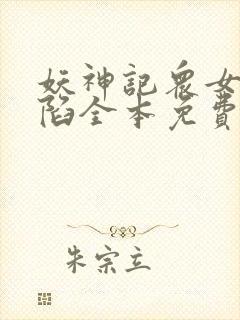 妖神記眾女
陷全本免費
朱宗立